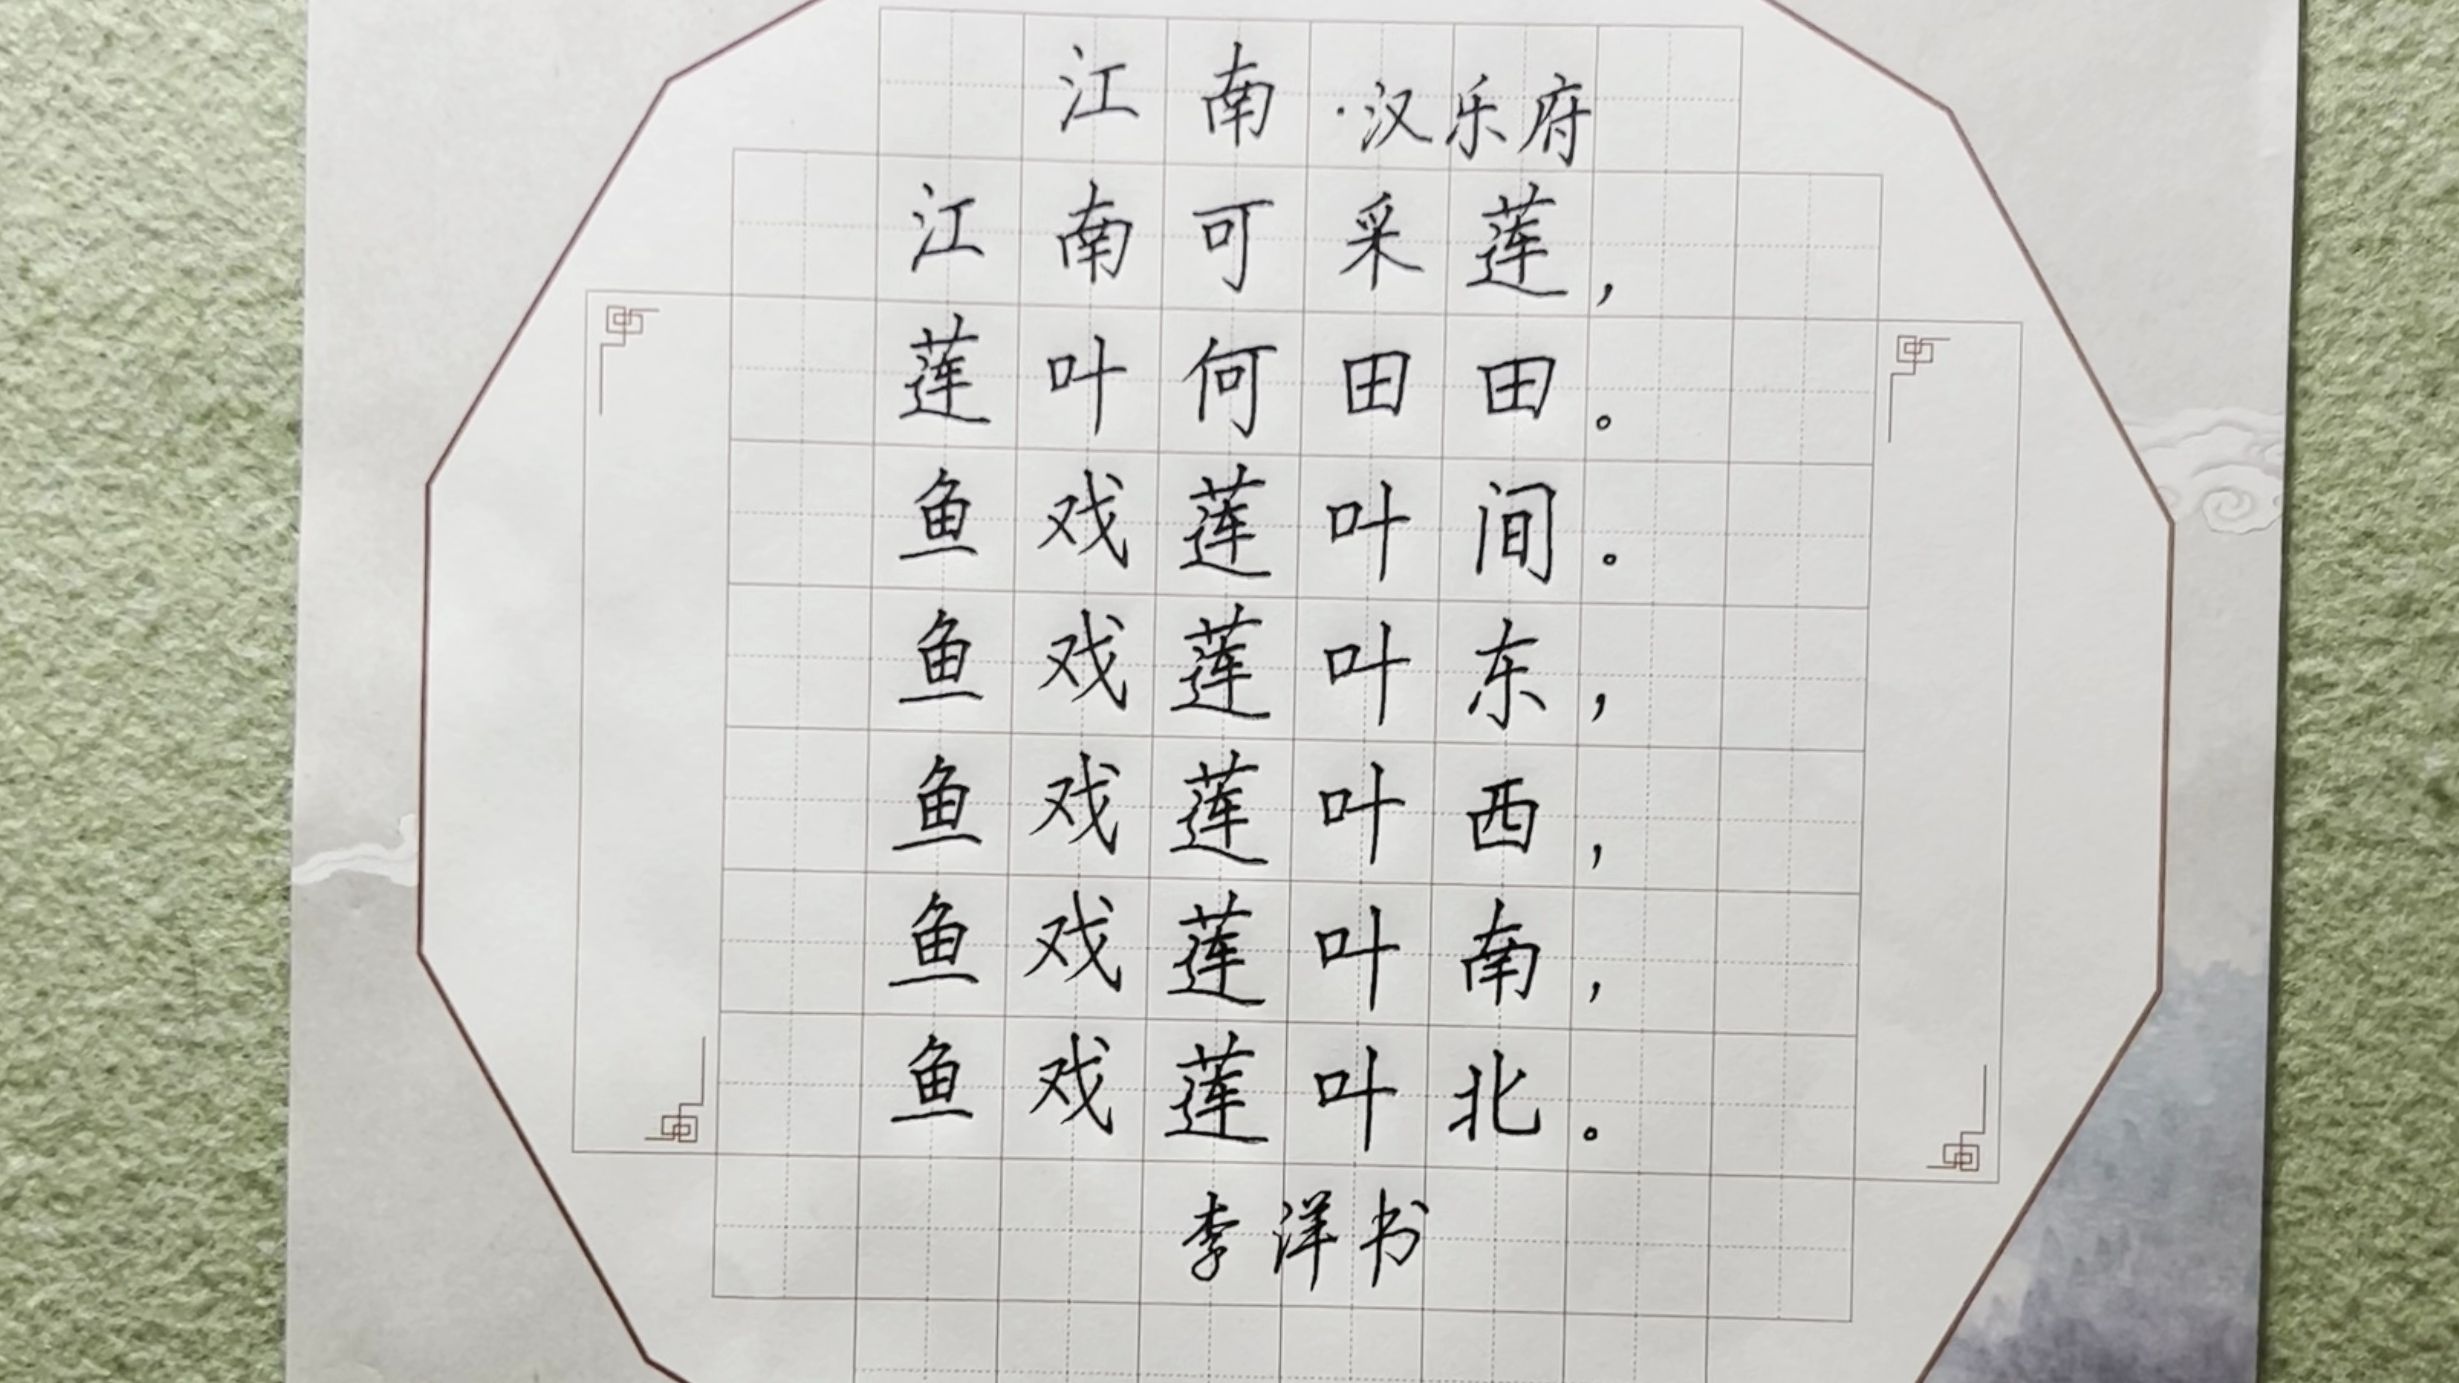 江南·汉乐府
江南可采莲，
莲叶何田田。
鱼戏莲叶间。
鱼戏莲叶东，
鱼戏莲叶西，
鱼戏莲叶南，
鱼戏莲叶北。
李洋书